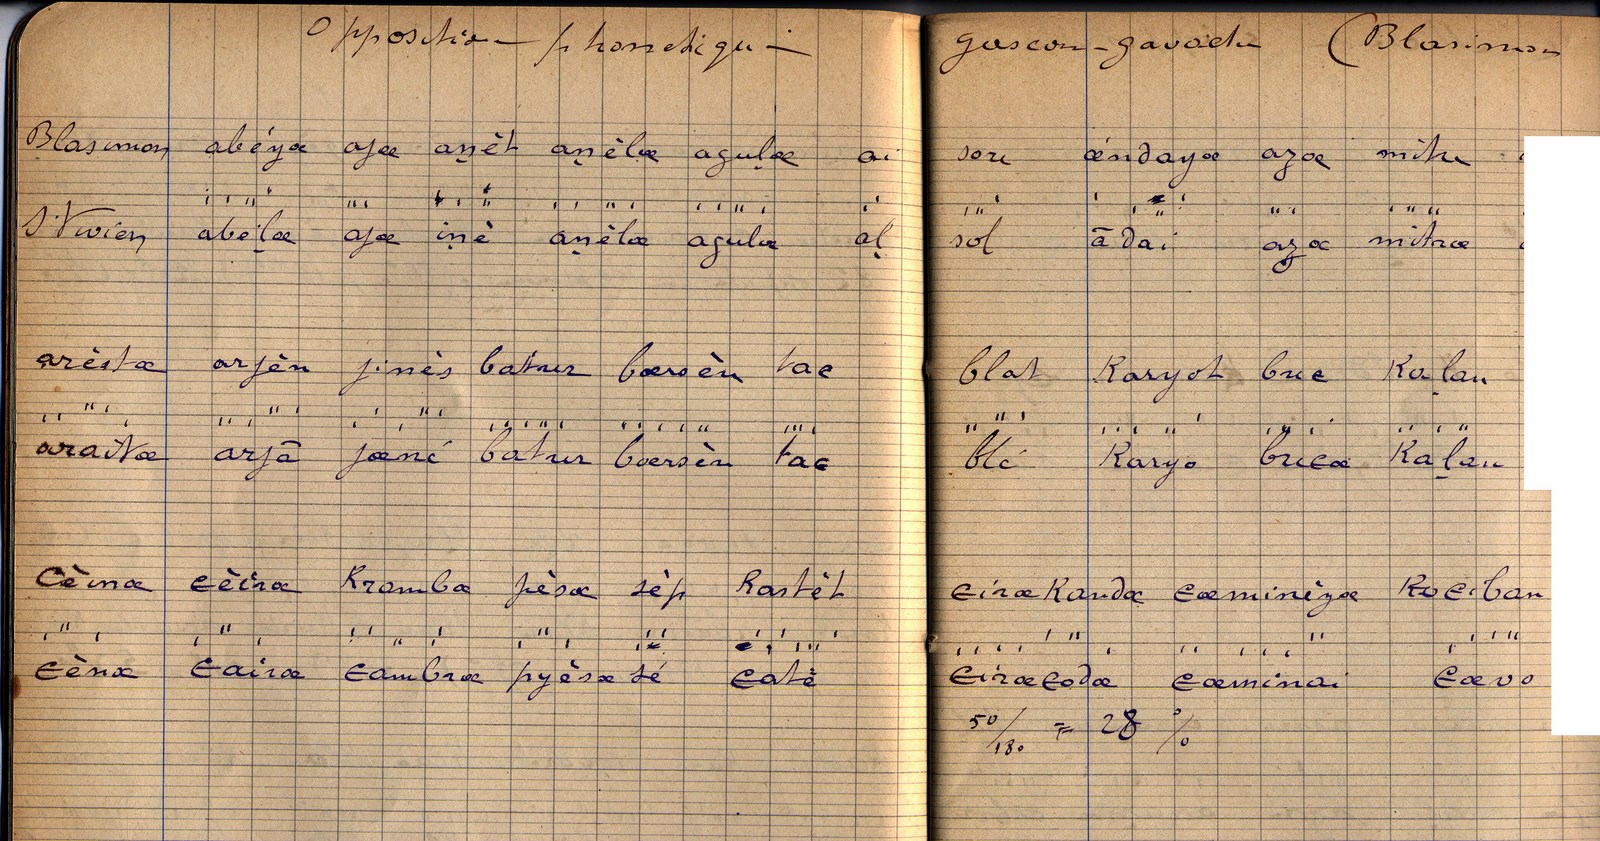 Opposition phonétique gascon-gavache (Blasimon
Blasimon abéyœ ajœ an̮èt an̮èlœ agul̮œ ai soru œ́ndayœ azœ mitu
St Vivien abél̮œ ajœ in̮è an̮èlœ agulœ al̮ sol ādai azœ mitrœ
arèstœ arjèn jinès batur bœrsèn tac blat Karyot bruc Kal̮au
araitœ arjā jœné batur bœrsèn tac blé Karyo brucœ Kal̮au
cèinœ cèirœ Krambœ pèsœ sèp Kastèt cirœKandœ cœminèyœ
cènœ cairœ cambrœ pyèsœ sé catè cirœcodœ cœminai cœvo
50/180 = 28 %